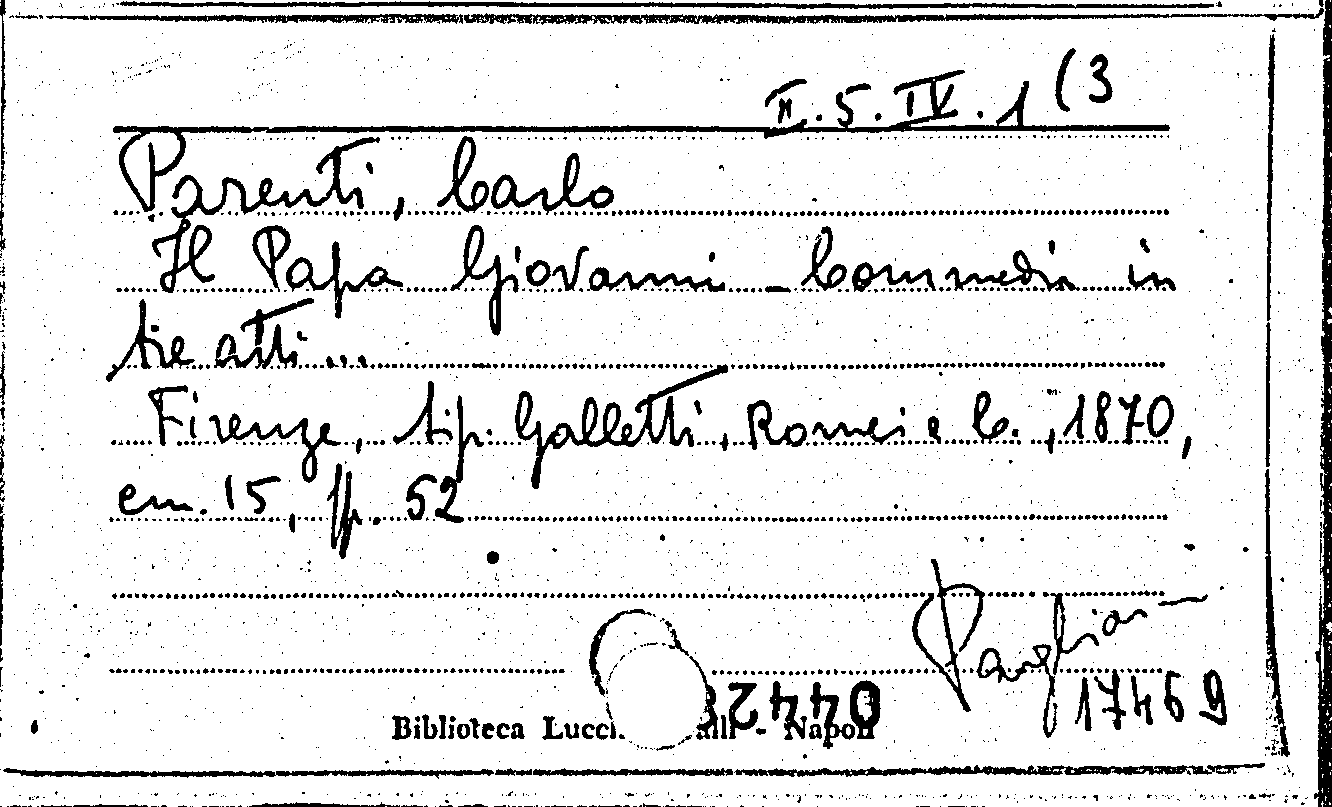 II.5.IV.1 (3
Parenti, Carlo
Il Papa Giovanni - Commedia in
tre atti...
Firenze, tip. Galletti, Romei e C., 1870,
cm. 15, pp. 52
17469
Biblioteca Lucchesi Palli - Napoli